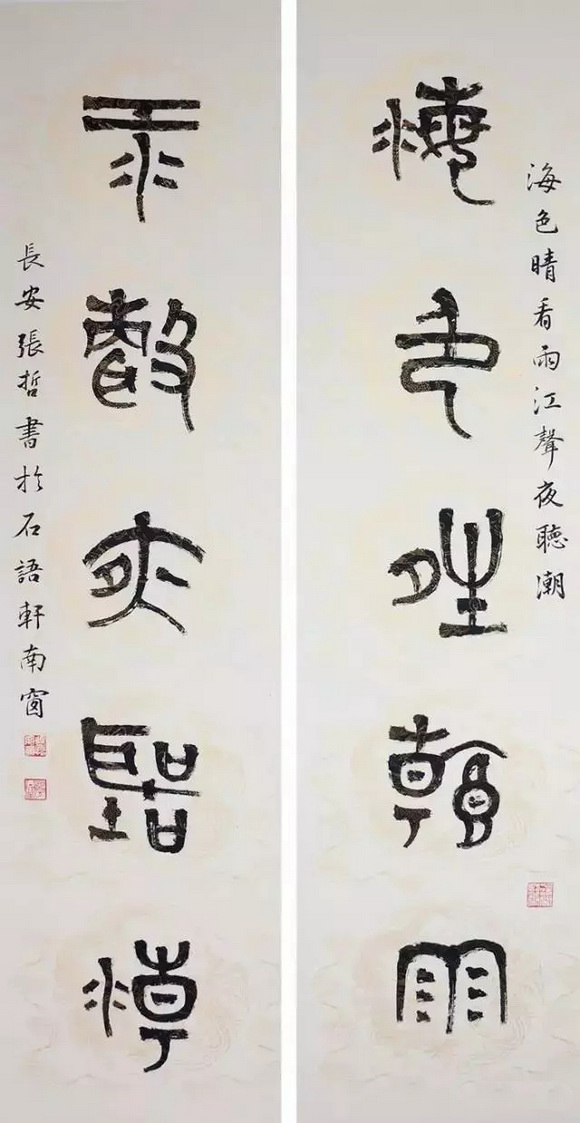 海色晴看雨江聲夜聽潮
海色晴看雨
江聲夜聽潮
長安張哲書於石語軒南窗